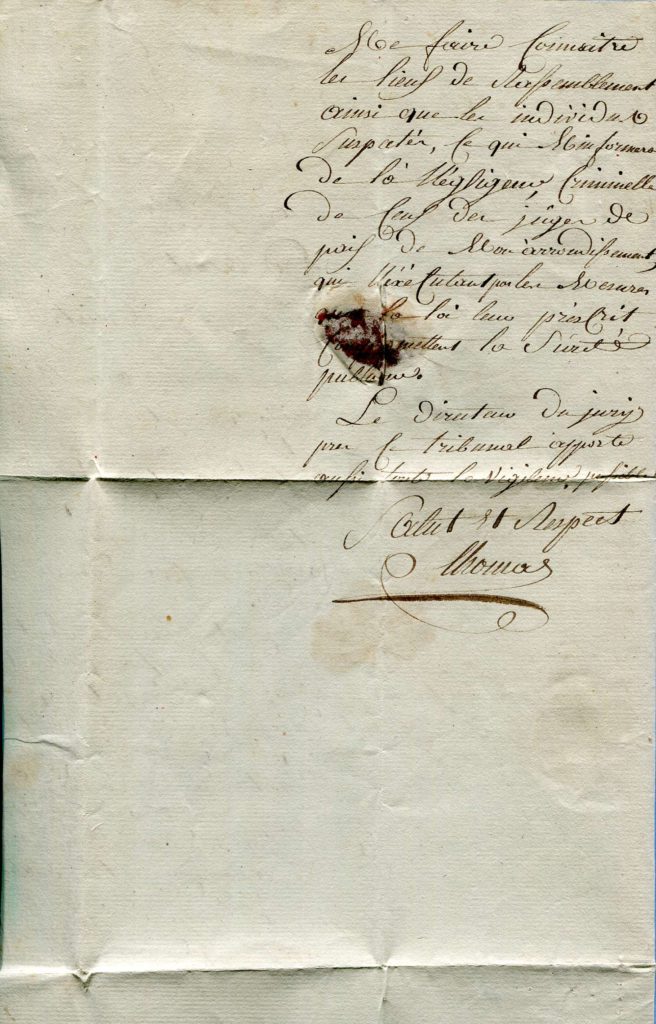 Me faire Connaitre
les lieus de Rassemblement
ainsi que les individus
Suspectés, Ce qui M'informera
de la Négligence Criminelle
de Ceus des juges de
paix de Mon arrondissement,
qui N'éxécutant pas les Mesures
que la loi leur préscrit
Compromettent la Sureté
publique.
Le directeur du jury
pres Ce tribunal apporte
aussi toute la vigilence possible
Salut et Respect
Thomas